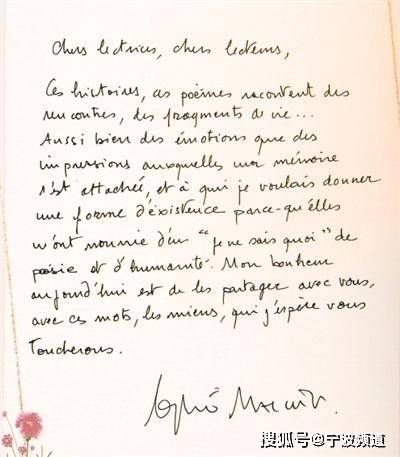 Chers lectrices, chers lecteurs,
Ces histoires, ces poèmes racontent des
rencontres, des fragments de vie...
Aussi bien des émotions que des
impressions auxquelles ma mémoire
s'est attachée, et à qui je voulais donner
une forme d'éxistence parce-qu'elles
m'ont nourrie d'un "je ne sais quoi" de
poésie et d'humanité. Mon bonheur
aujourd'hui est de les partager avec vous,
avec ces mots, les miens, qui j'espère vous
toucherons.
搜狐号@宁波频道